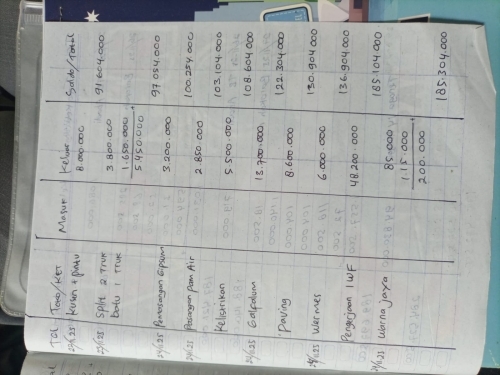 Tgl Toko/KET Masuk Keluar Saldo/Total
23/1/25 Kusen + pintu 8.000.000 91.604.000
23/1/25 Split 2 Truk 3.800.000
batu 1 Truk 1.650.000 +
5.450.000 97.054.000
Pemasangan Gipsum 3.200.000 100.254.000
Pasangan Pam Air 2.850.000 103.104.000
Kelistrikan 5.500.000 108.604.000
Galfalum 13.700.000 122.304.000
Paving 8.600.000 130.904.000
Wermes 6.000.000 136.904.000
Pengerjaan 1 WF 48.200.000 185.104.000
Warna Jaya 85.000
115.000 +
200.000 185.304.000